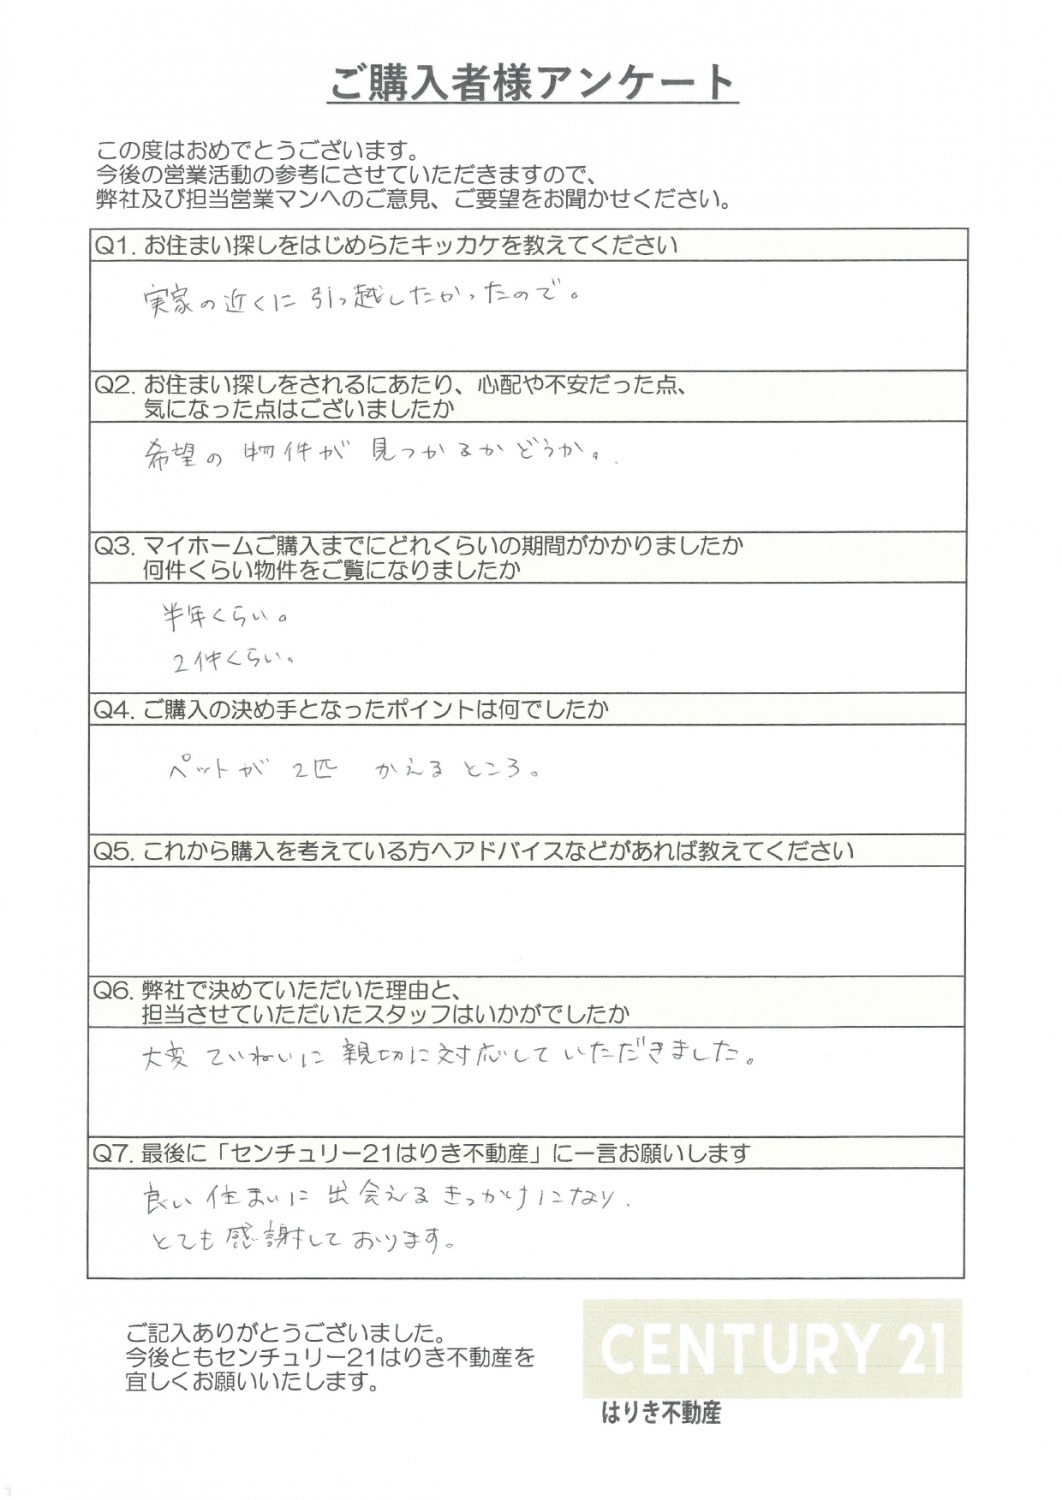 ご購入者様アンケート
この度はおめでとうございます。
今後の営業活動の参考にさせていただきますので、
弊社及び担当営業マンへのご意見、ご要望をお聞かせください。
Q1. お住まい探しをはじめらたキッカケを教えてください
実家の近くに引っ越したかったので。
Q2. お住まい探しをされるにあたり、心配や不安だった点、
気になった点はございましたか
希望の物件が見つかるかどうか。
Q3. マイホームご購入までにどれくらいの期間がかかりましたか
何件くらい物件をご覧になりましたか
半年くらい。
2件くらい。
Q4. ご購入の決め手となったポイントは何でしたか
ペットが2匹 かえるところ。
Q5. これから購入を考えている方へアドバイスなどがあれば教えてください
Q6. 弊社で決めていただいた理由と、
担当させていただいたスタッフはいかがでしたか
大変ていねいに親切に対応していただきました。
Q7. 最後に「センチュリー21はりき不動産」に一言お願いします
良い住まいに出会えるきっかけになり、
とても感謝しております。
ご記入ありがとうございました。
今後ともセンチュリー21はりき不動産を
宜しくお願いいたします。
CENTURY 21
はりき不動産